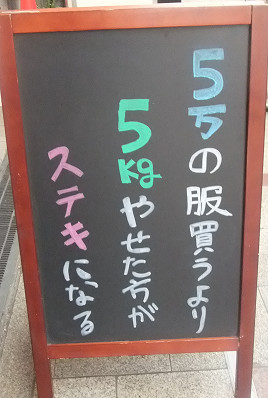 5万の服買うより
5kgやせた方が
ステキになる